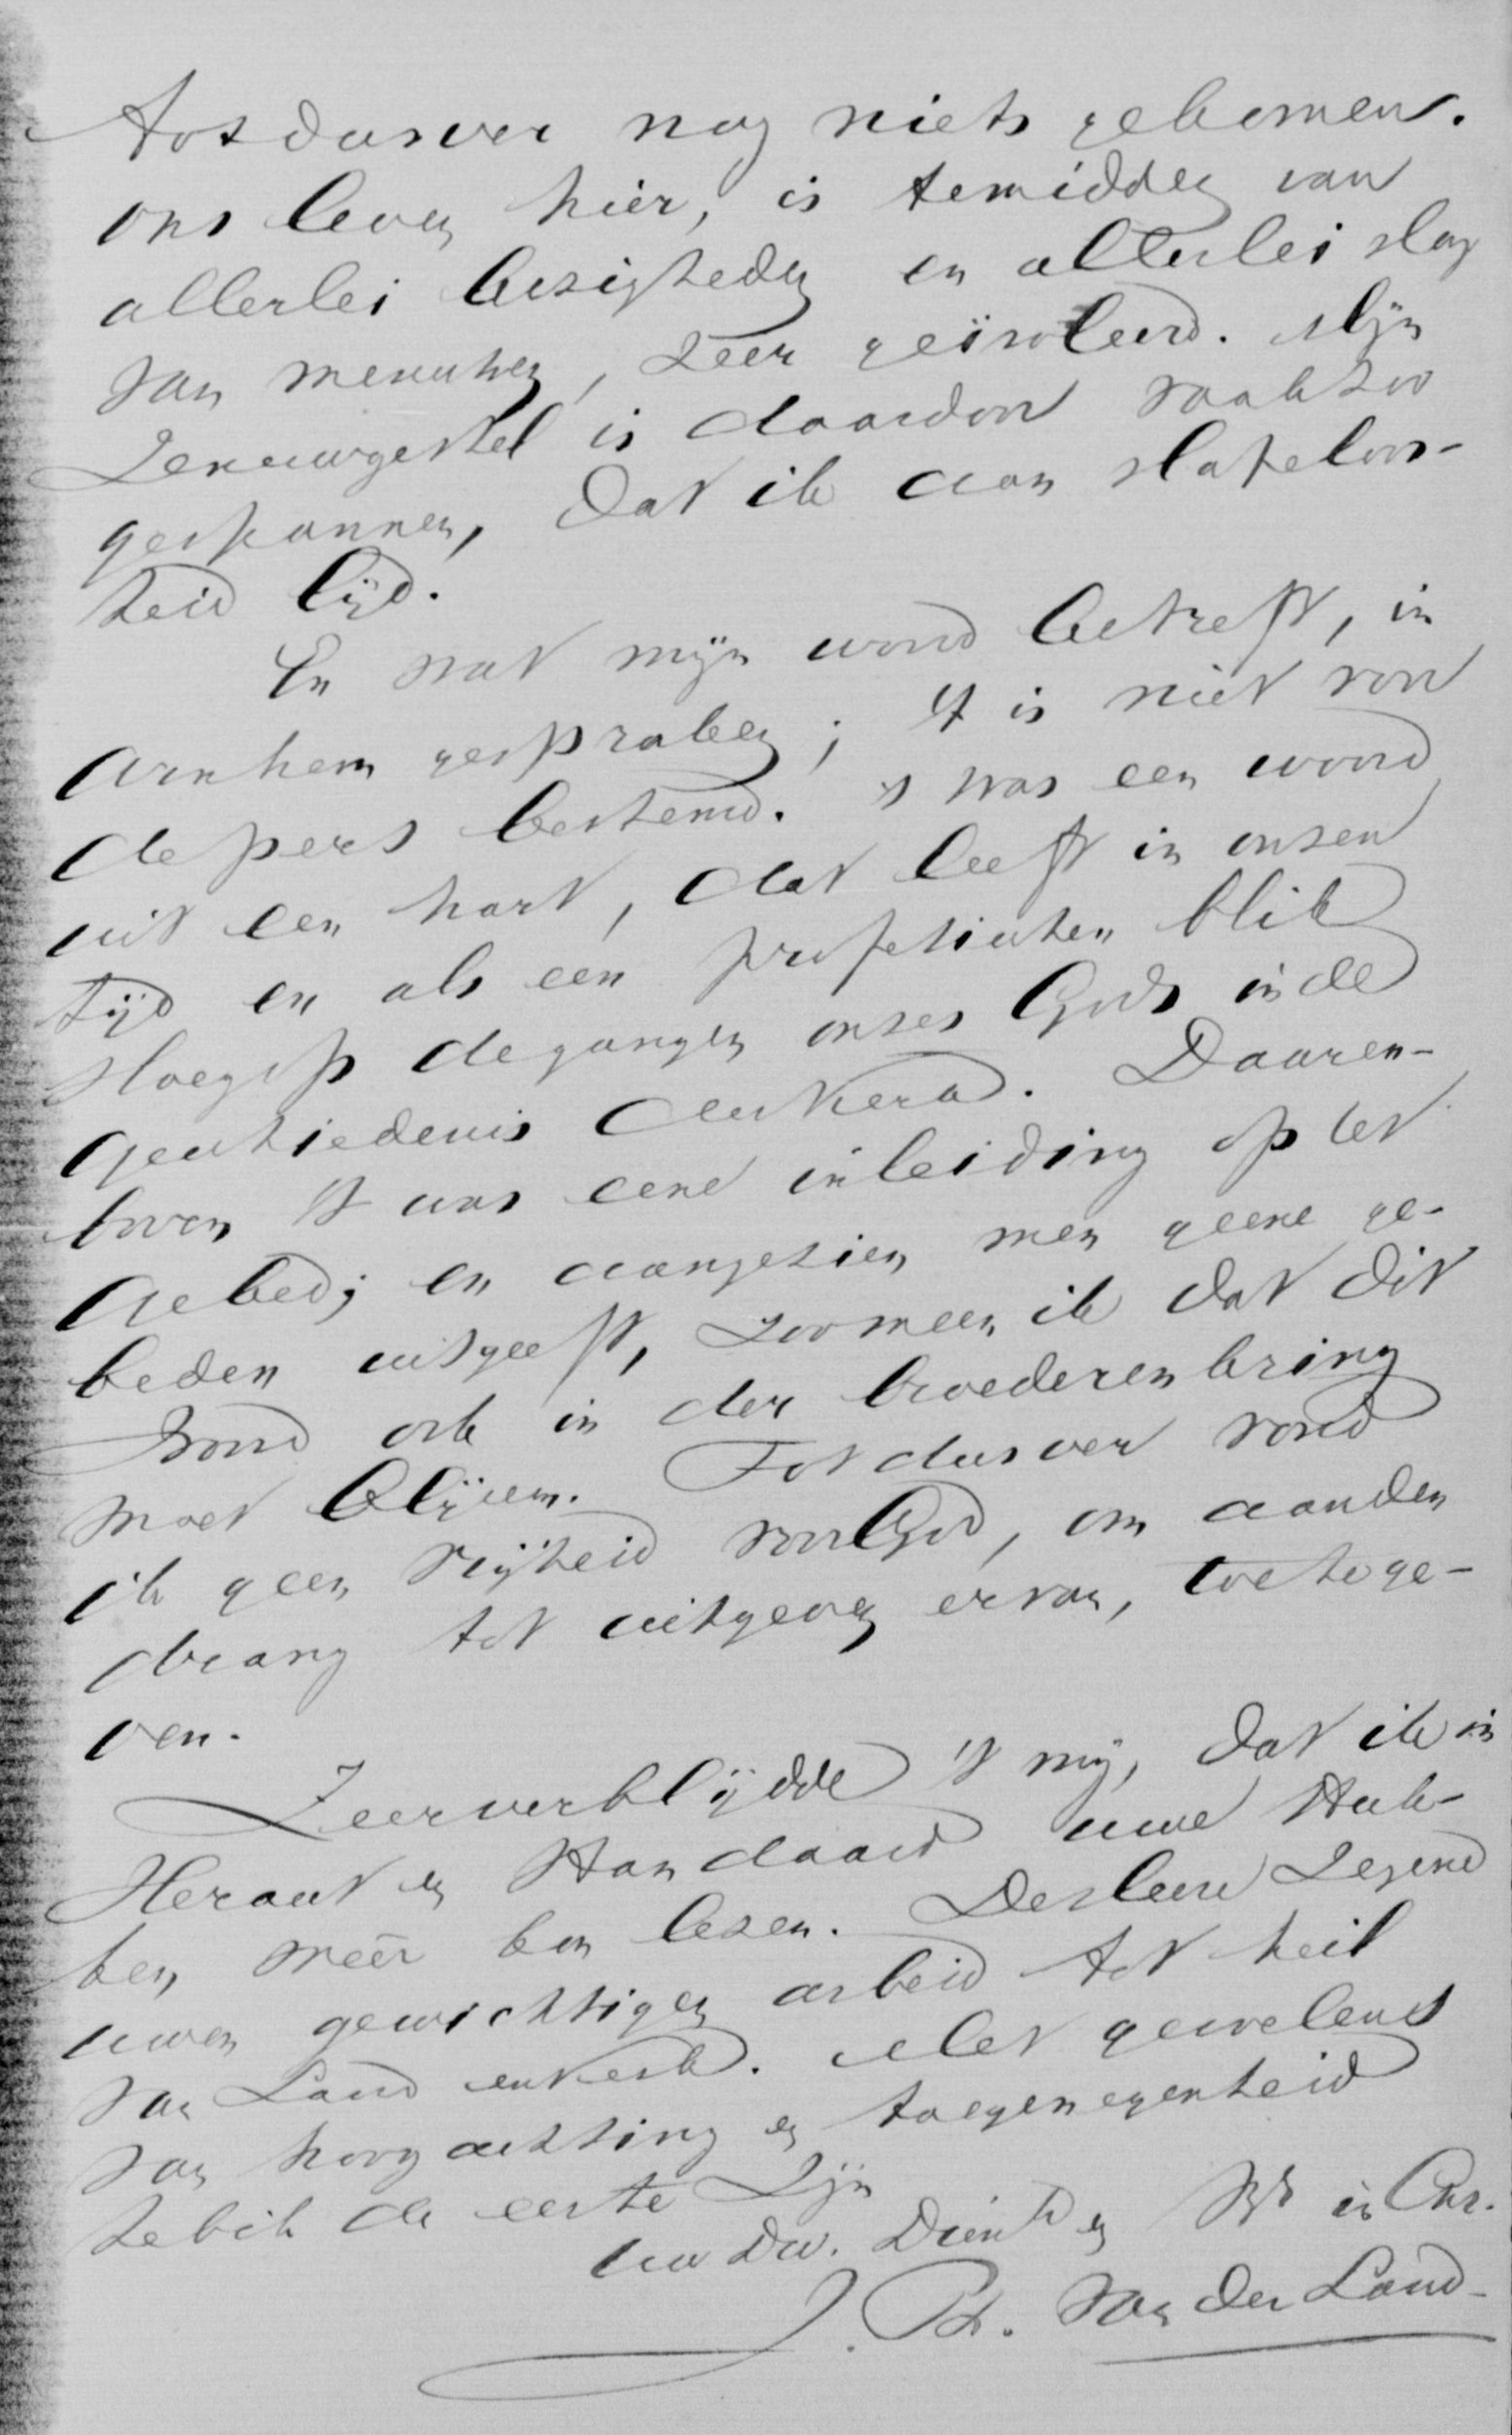 tot dusver nog niets gekomen.
ons leven hier, is temidden van
allerlei bezigheden en allerlei slag
van menschen, zeer geïsoleerd. Mijn
Zenuwgestel is daardoor vaak zoo
gespannen, dat ik aan slapeloos-
heid lijd.
En wat mijn woord betreft, in
Arnhem gesproken; 't is niet voor
de pers bestemd. 't was een woord
uit een hart, dat leeft in onzen
tijd en als een profetischen blik
sloeg op de gangen onzes Gods in de
geschiedenis der Kerk. Daaren-
boven 't was eene inleiding op het
Gebed; en aangezien men geene ge-
beden uitgeeft, zoo meen ik dat dit
woord ook in der broederen kring
moet blijven. Tot dusver vond
ik geen vrijheid voor God, om aan den
drang tot uitgeven ervan, toe te ge-
ven.
Zeer verblijdde 't mij, dat ik in
Heraut en Standaard uwe Stuk-
ken weêr kon lezen. De Heere Zegene
uwen gewichtigen arbeid tot heil
van Land en Kerk. Met gevoelens
van hoogachting en toegenegenheid
heb ik de eer te Zijn
Uw Dw. Dienr en Br in Chr.
J. Ph. van der Land